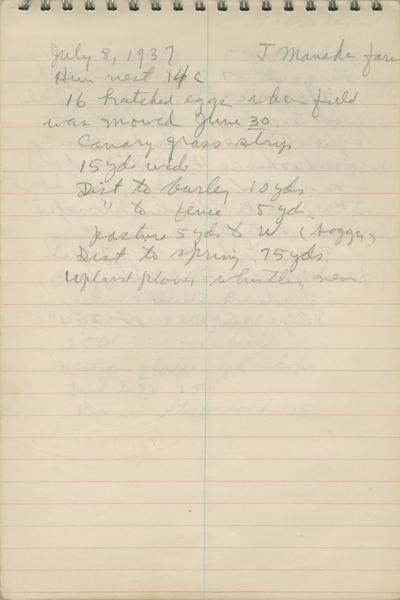 July 8, 1937 J Manske farm
Hun nest 14 C
16 hatched eggs when field
was mowed June 30.
Canary grass strip
15 yds wide
Dist to barley 10 yds
" to fence 5 yd
pasture 5 yds to W (boggy)
Dist to spring 75 yds
Upland plover whistling near